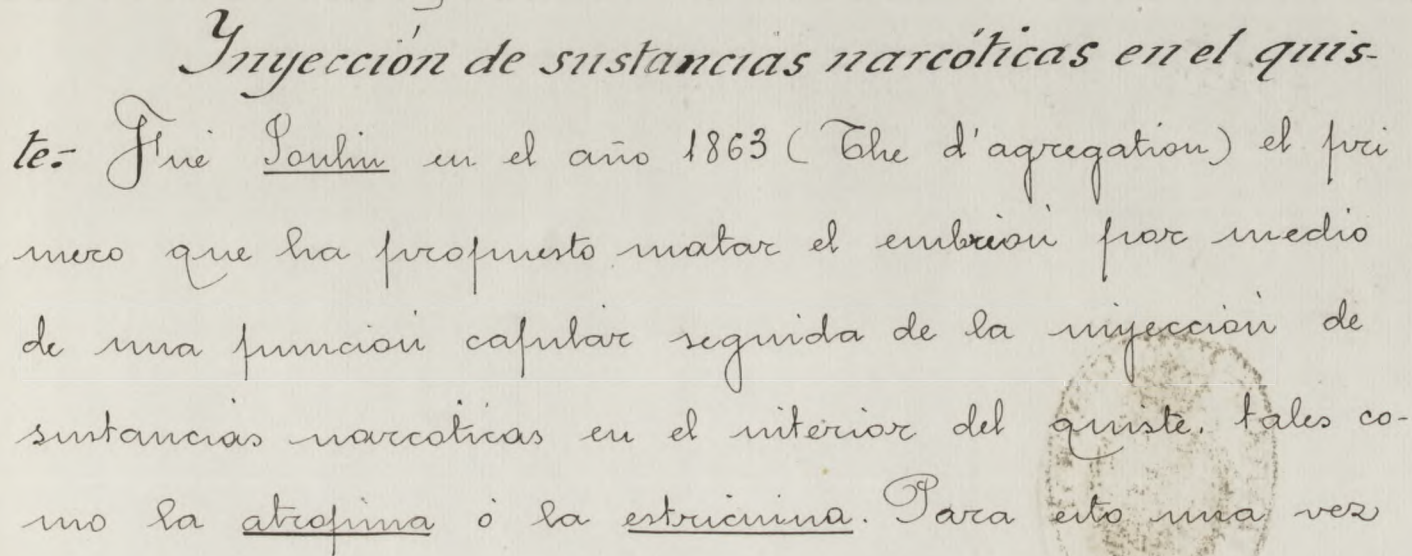 Inyección de sustancias narcóticas en el quis-
te.- Fué Joulin en el año 1863 (The d'agregation) el pri
mero que ha propuesto matar el embrión por medio
de una punción capular seguida de la inyección de
sustancias narcoticas en el interior del quiste. tales co-
mo la atropina ó la estricnina. Para esto una vez